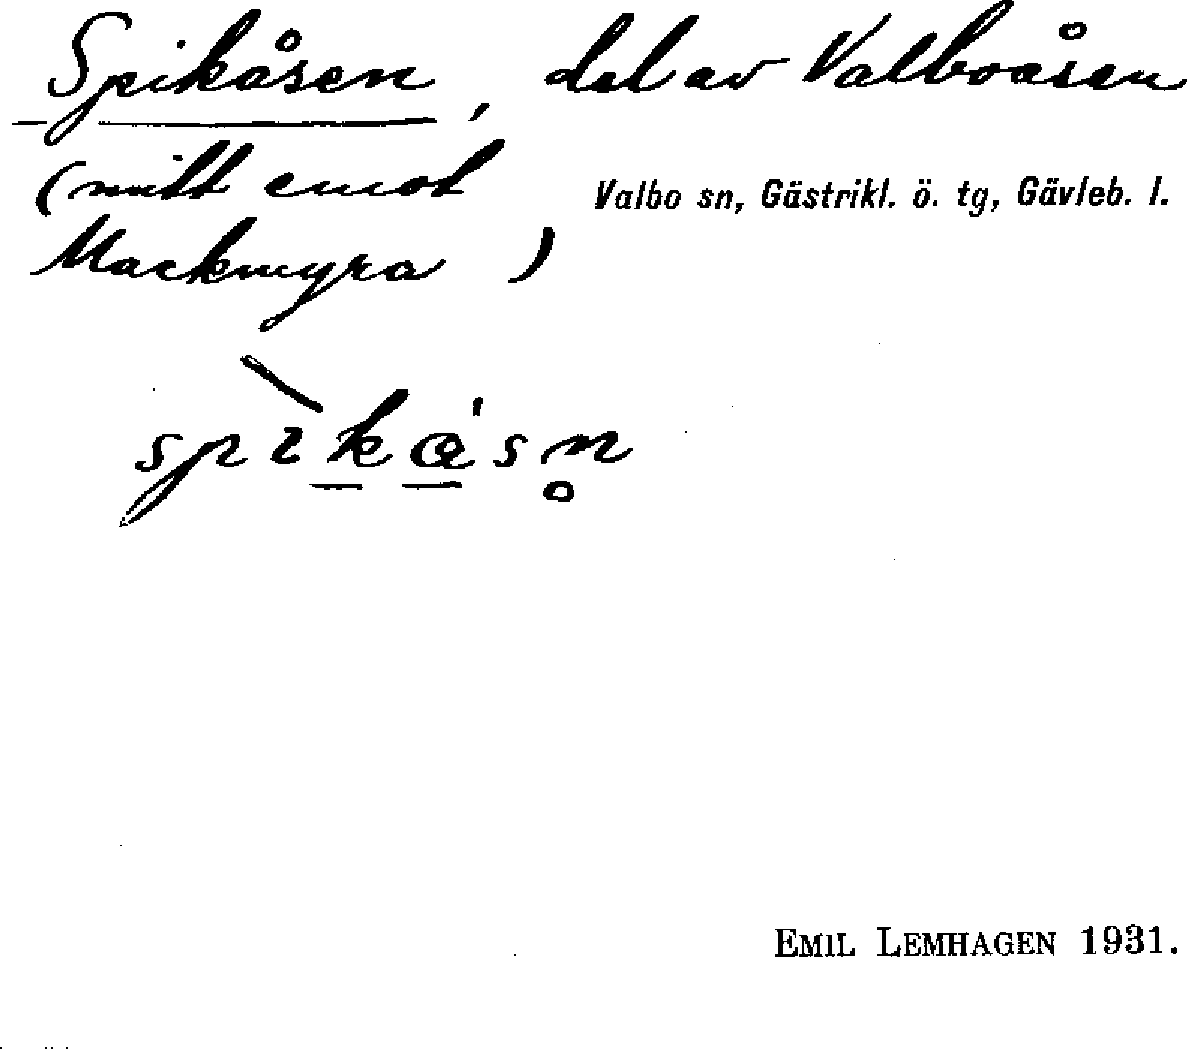 Spikåsen, del av Valboåsen
(mitt emot
Valbo sn, Gästrikl. ö. tg, Gävleb. l.
Mackmyra )
EMIL LEMHAGEN 1931.